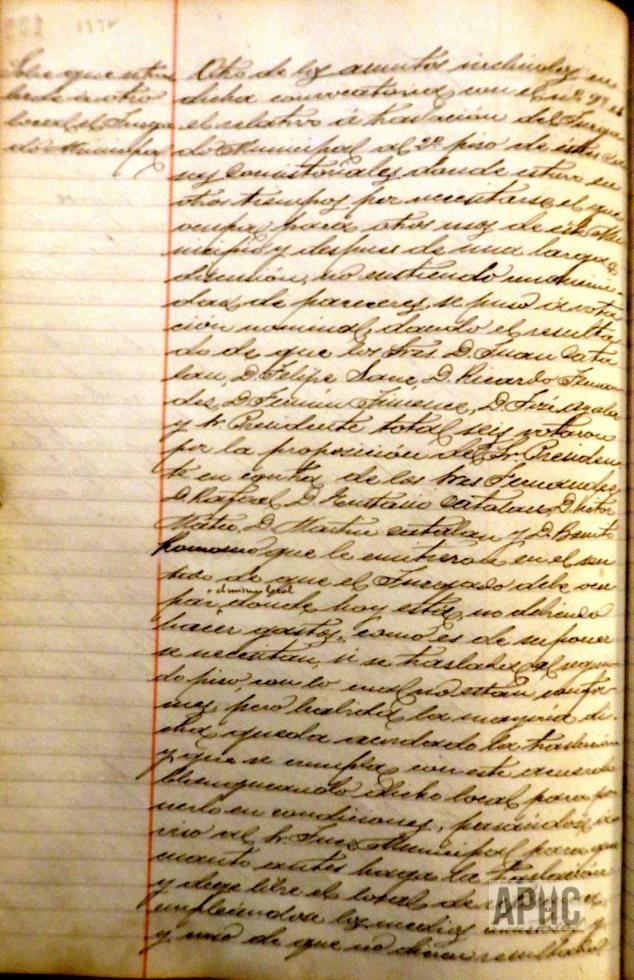 Sobre que se tras
lade a otro
local el Juzga
do Municipal
Otro de los asuntos incluidos en
dicha convocatoria con el nº 9º es
el relativo á traslación del Juzga
do Municipal al 2º piso de estas
Consistoriales donde estuvo en
otros tiempos por necesitarse el que
ocupa para otros usos de este Mu
nicipio y despues de una larga
discusión, no existiendo unanimi
dad de pareceres, se puso á vota
ción nominal, dando el resulta
do de que los Sres D. Juan Cata
lan, D. Felipe Sanz, D. Ricardo Fernan
dez, D. Fermín Jimenez, D. José Ayala
y Sr. Presidente total seis votaron
por la proposición del Sr. Presiden
te en contra de los Sres Fernandez
D. Rafael, D. Eustasio Catalan, D. Victor
Mateo, D. Martin Catalan y D. Benito
que lo emitieron en el sen
tido de que el Juzgado debe ocu
par el mismo local donde hoy está, no debiendo
hacer gastos, como es de suponer
se necesitan, si se traslada al segun
do piso, con lo cual no están confor
mes, pero habida la mayoría di
cha queda acordado la traslación
y que se cumpla con este acuerdo
blanqueando dicho local para po
nerlo en condiciones, pasándose a
viso al Sr. Juez Municipal para que
cuanto antes haga la traslación
y deje libre el local de
empleándose los medios
y caso de que no dieran resultado
APHC